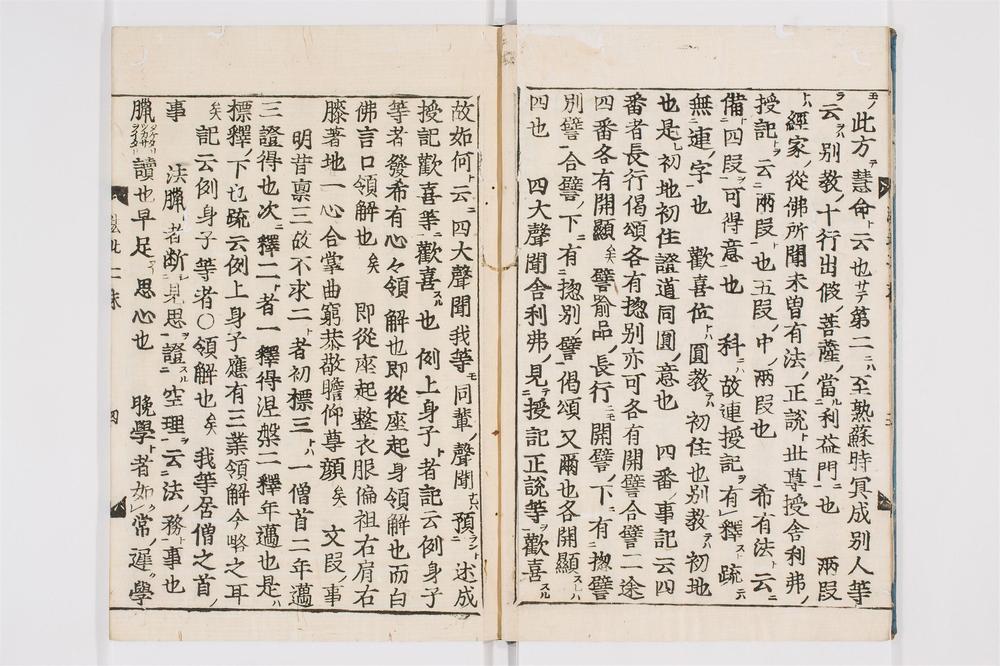 此方慧命云也第二至熟蘇時冥成別人等
云別教十行出假菩薩當利益門也　兩段
經家從佛所聞未曽有法正說世尊授舍利弗
授記云兩段也五段中兩段也　希有法云
備四段可得意也　科　故連授記有釋疏
無連字也　歡喜位圓教初住也別教初地
也是初地初住證道同圓意也　四番事記云四
番者長行偈頌各有揔別亦可各有開譬合譬二途
四番各有開顯矣　譬喩品長行開譬下有揔譬
別譬合譬下有揔別譬偈頌又爾也各開顯
四也　四大聲聞舍利弗見授記正說等歡喜
故如何云四大聲聞我等同輩聲聞預述成
授記歡喜等歡喜也　例上身子者記云例身子
等者發希有心々領解也即從座起身領解也而白
佛言口領解也矣　即從座起整衣服偏袒右肩右
膝著地一心合掌曲躬恭敬瞻仰尊顔矣　文段事
明昔禀三故不求二者初標三一僧首二年邁
三證得也次釋二者一釋得涅槃二釋年邁也是
標釋下也疏云例上身子應有三業領解今略之耳
矣記云例身子等者〇領解也矣　我等居僧之首
事　法臘者断見思證空理云法務事也
臘讀也早足思心也　晩學者如常遲學